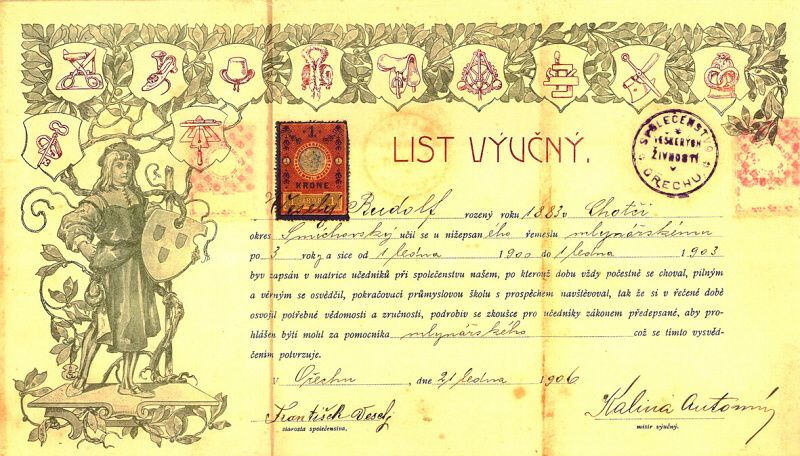 LIST VÝUČNÝ.
SPOLEČENSTVO VEŠKERÝCH ŽIVNOSTÍ OŘECHU
1
KRONE
1898
Veselý Rudolf rozený roku 1883 v Chotči
okres Smíchovský učil se u nížepsaného řemeslu mlynářskému
po 3 roky a sice od 1 ledna 1900 do 1 ledna 1903
byv zapsán v matrice učedníků při společenstvu našem, po kterouž dobu vždy počestně se choval, pilným
a věrným se osvědčil, pokračovací průmyslovou školu s prospěchem navštěvoval, tak že si v řečené době
osvojil potřebné vědomosti a zručnosti, podrobiv se zkoušce pro učedníky zákonem předepsané, aby pro-
hlášen býti mohl za pomocníka mlynářského což se tímto vysvěd-
čením potvrzuje.
v Ořechu, dne 21 ledna 1906
František Veselý
starosta společenstva.
Kalina Antonín
mistr výučný.